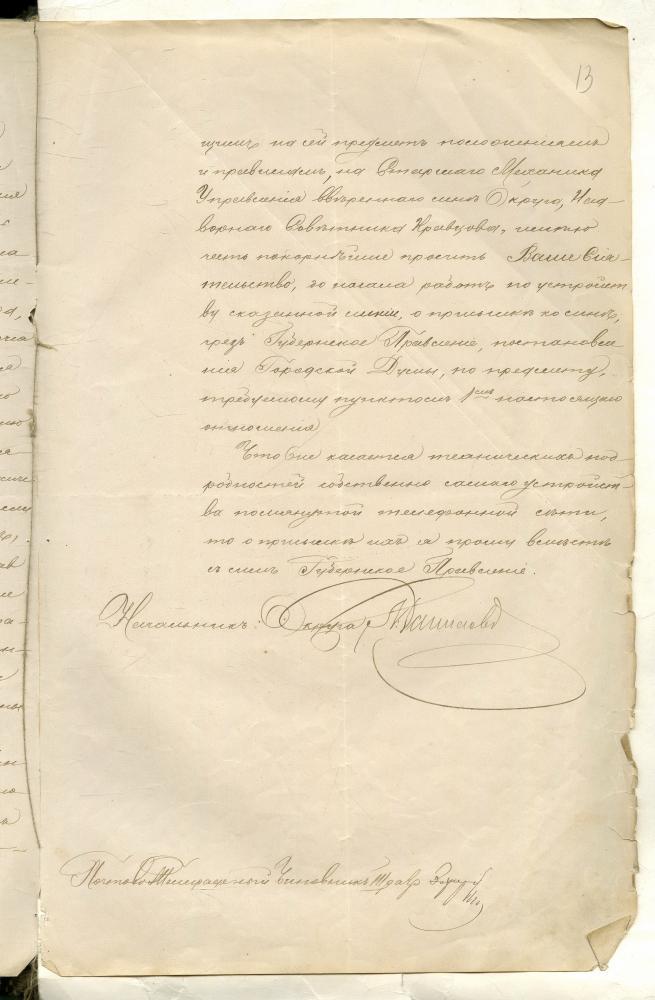 13
щимъ на сей предметъ положеніямъ
и правиламъ, на Старшаго Механика
Управленія ввѣреннаго мнѣ Округа, Над-
ворнаго Совѣтника Кравцова, имѣю
честь покорнѣйше просить Ваше Сія-
тельство, до начала работъ по устройст
ву сказанной линіи, о присылкѣ ко мнѣ,
чрезъ Губернское Правленіе, постановле
нія Городской Думы, по предмету,
требуемому пунктомъ 1мъ настоящаго
отношенія
Что же касается техническихъ под-
робностей собственно самаго устройст-
ва помянутой телефонной сѣти,
то о присылкѣ ихъ я прошу вмѣстѣ
съ симъ Губернское Правленіе.
Начальникъ Округа
Почтово Телеграфный Чиновникъ